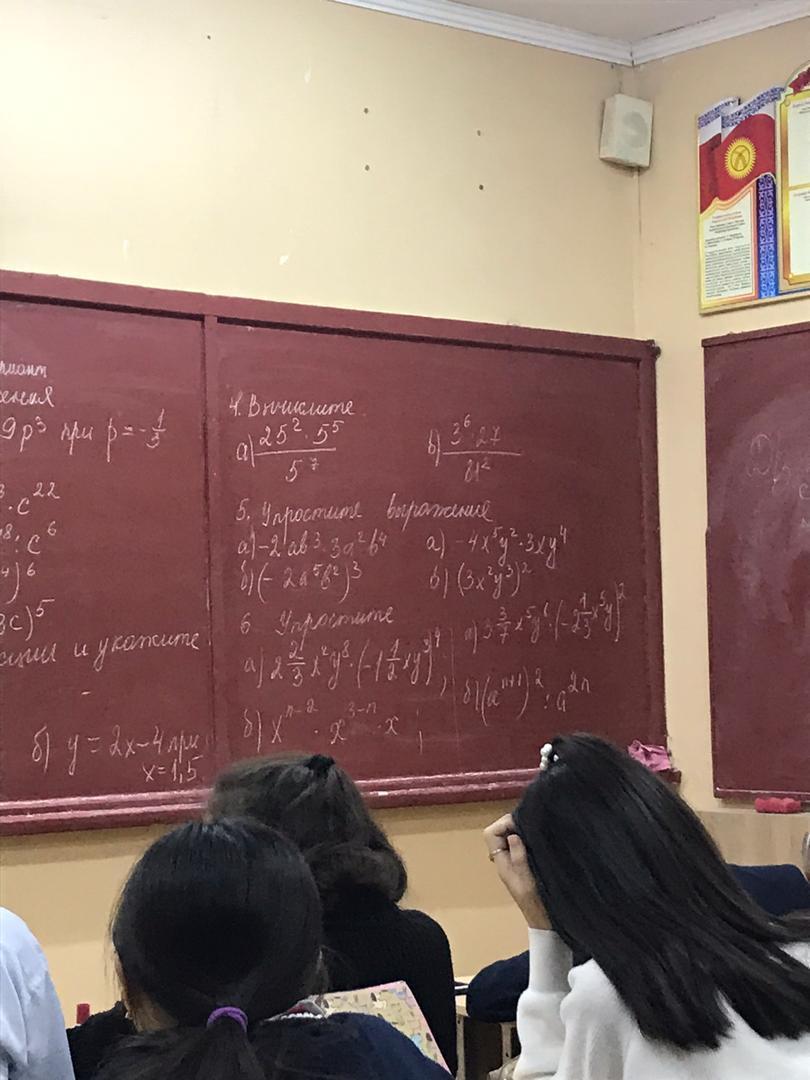 9p³ при p = -1/3
· c²²
: c⁶
)⁶
3c)⁵
и укажите
б) y = 2x - 4 при
x = 1,5
4. Вычислите
а) 25² · 5⁵ / 5⁷
б) 3⁶ · 27 / 81²
5. Упростите выражение
а) -2ab³ · 3a²b⁴
а) -4x⁵y² · 3xy⁴
б) (-2a⁵b²)³
б) (3x²y³)²
6 Упростите
а) 2 2/3 x²y⁸ · (-1 1/2 xy³)⁴;
а) 3 3/7 x⁵y⁶ · (-2 1/3 x⁵y)²
б) xⁿ⁻² · x³⁻ⁿ · x;
б) (aⁿ⁺¹)² : a²ⁿ